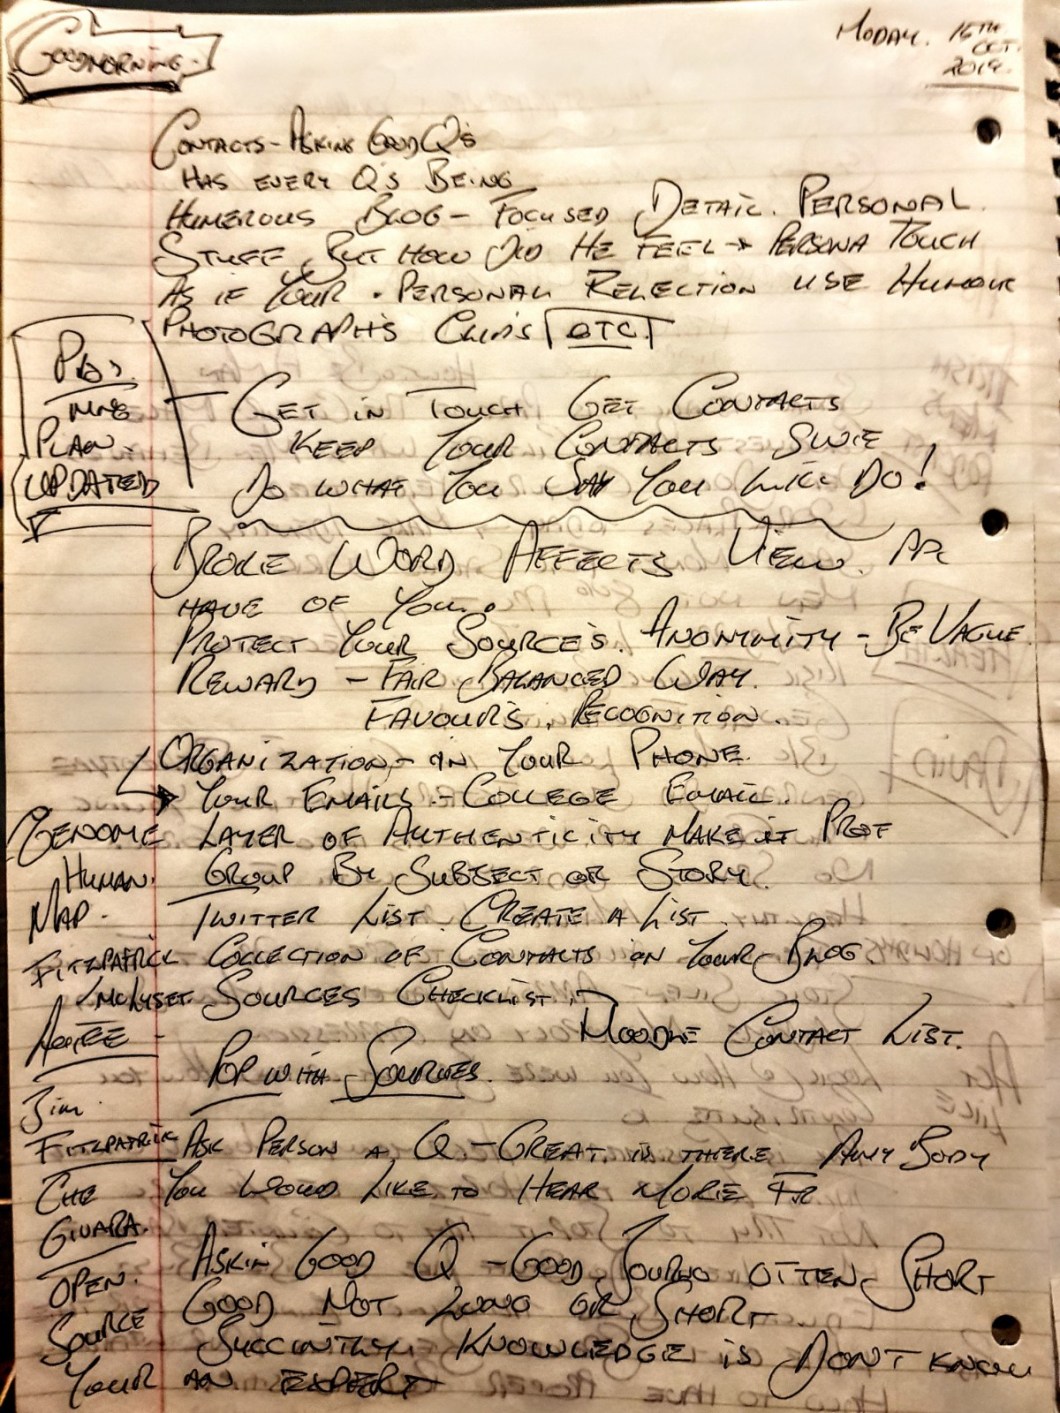 GOODMORNING.
MODAY. 16TH
OCT.
2019.
CONTACTS - ASKING GOOD Q'S
HAS EVERY Q'S BEING
HUMEROUS BLOG - FOCUSED DETAIL. PERSONAL
STUFF, BUT HOW DID HE FEEL → PERSONA TOUCH
AS IF YOUR. PERSONAL REFLECTION USE HUMOUR
PHOTOGRAPHS CLIPS ETC.
NING
PLAN.
UPDATED
GET IN TOUCH GET CONTACTS
KEEP YOUR CONTACTS
DO WHAT YOU SAY YOU WILL DO!
BROKE WORD AFFECTS VIEW.
HAVE OF YOU.
PROTECT YOUR SOURCE'S. ANONYMITY - BE VAGUE
REWARD - FAIR BALANCED WAY.
FAVOUR'S. RECOGNITION.
ORGANIZATION - IN YOUR PHONE.
YOUR EMAILS - COLLEGE EMAIL.
LAYER OF AUTHENTICITY MAKE IT PROF
GROUP BY SUBJECT OR STORY.
TWITTER LIST. CREATE A LIST.
COLLECTION OF CONTACTS ON YOUR BLOG.
SOURCES CHECKLIST
MOODLE CONTACT LIST.
POP WITH SOURCES.
GENOME
HUMAN.
MAP.
FITZPATRICK
/MCLYSET.
AOIFE
JIM.
FITZPATRICK
CHE
GIUARA.
OPEN.
SOURCE
ASK PERSON A Q - GREAT. IS THERE ANY BODY
YOU WOULD LIKE TO HEAR MORE FR
ASKIN GOOD Q - GOOD JOURNO OTTEN SHORT
GOOD NOT LONG OR SHORT
SUCCINTLY. KNOWLEDGE IS DON'T KNOW
YOUR AN EXPERT